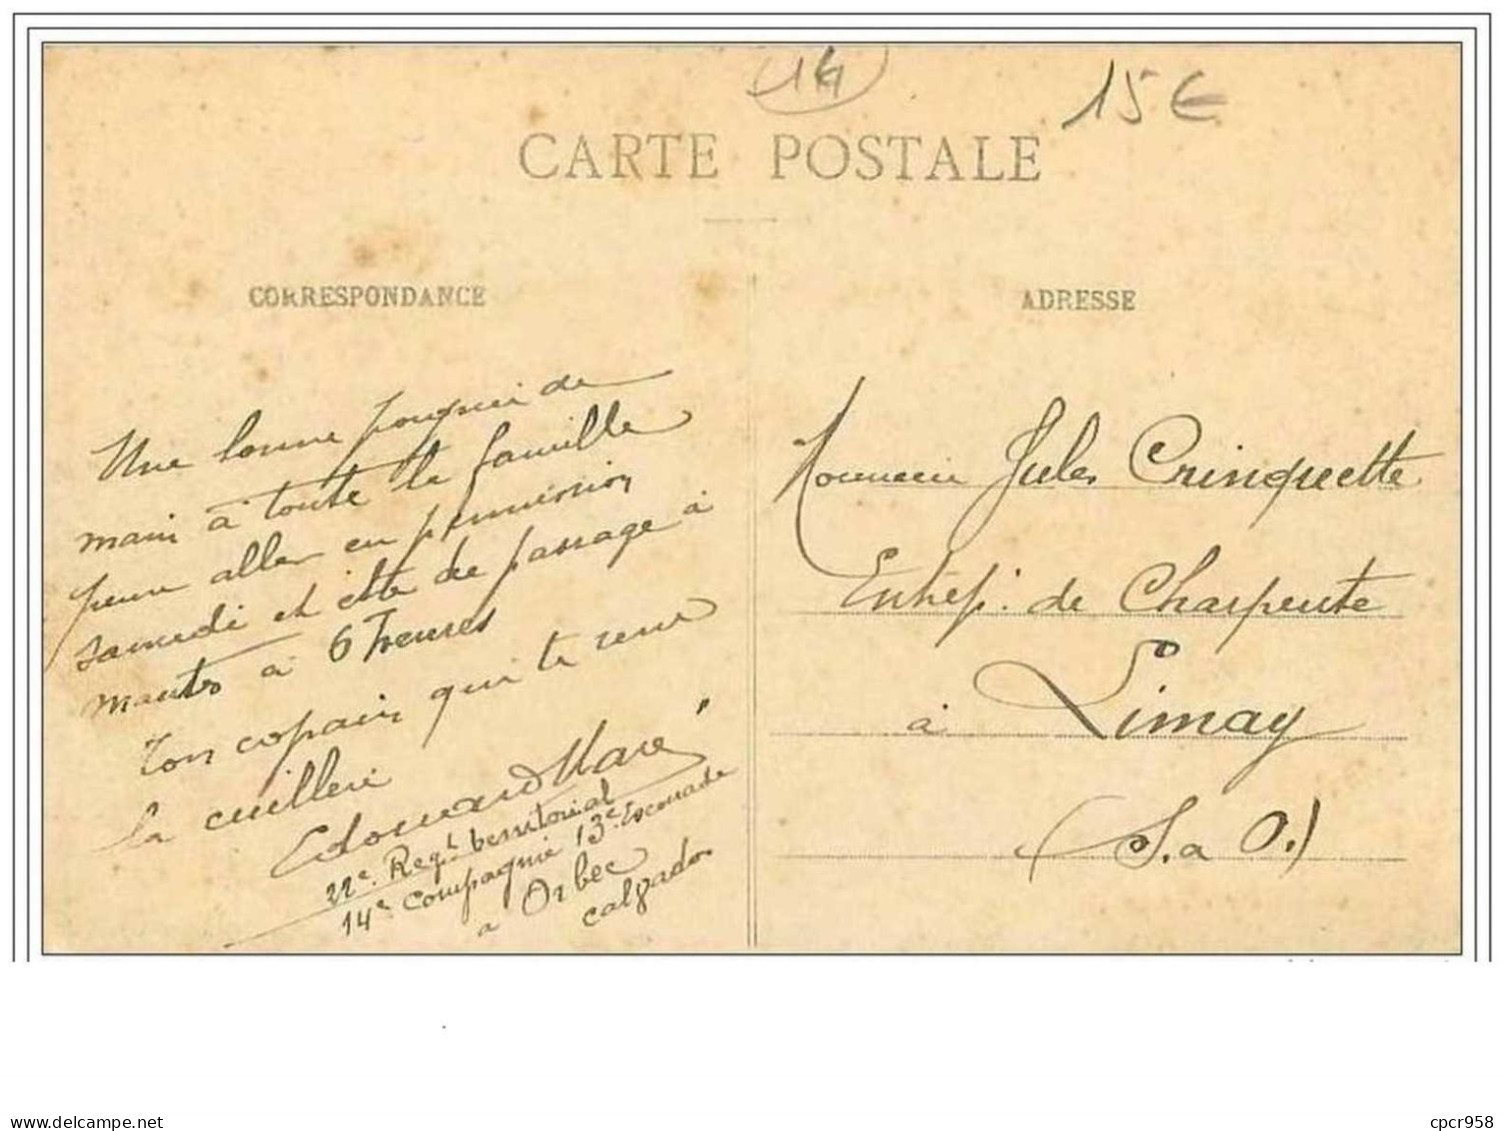 14
15€
CARTE POSTALE
CORRESPONDANCE
ADRESSE
Une bonne poignée de
main à toute la famille
peux aller en permission
samedi et être de passage à
mantes à 6 heures
Ton copain qui te serre
la cuillère
Edouard Mare
22e. Regt territorial
14e Compagnie 13e. Escouade
a Orbec
calvados
Monsieur Jules Crinquette
Entrep. de Charpente
à Limay
(S. a O.)
cpcr958
www.delcampe.net